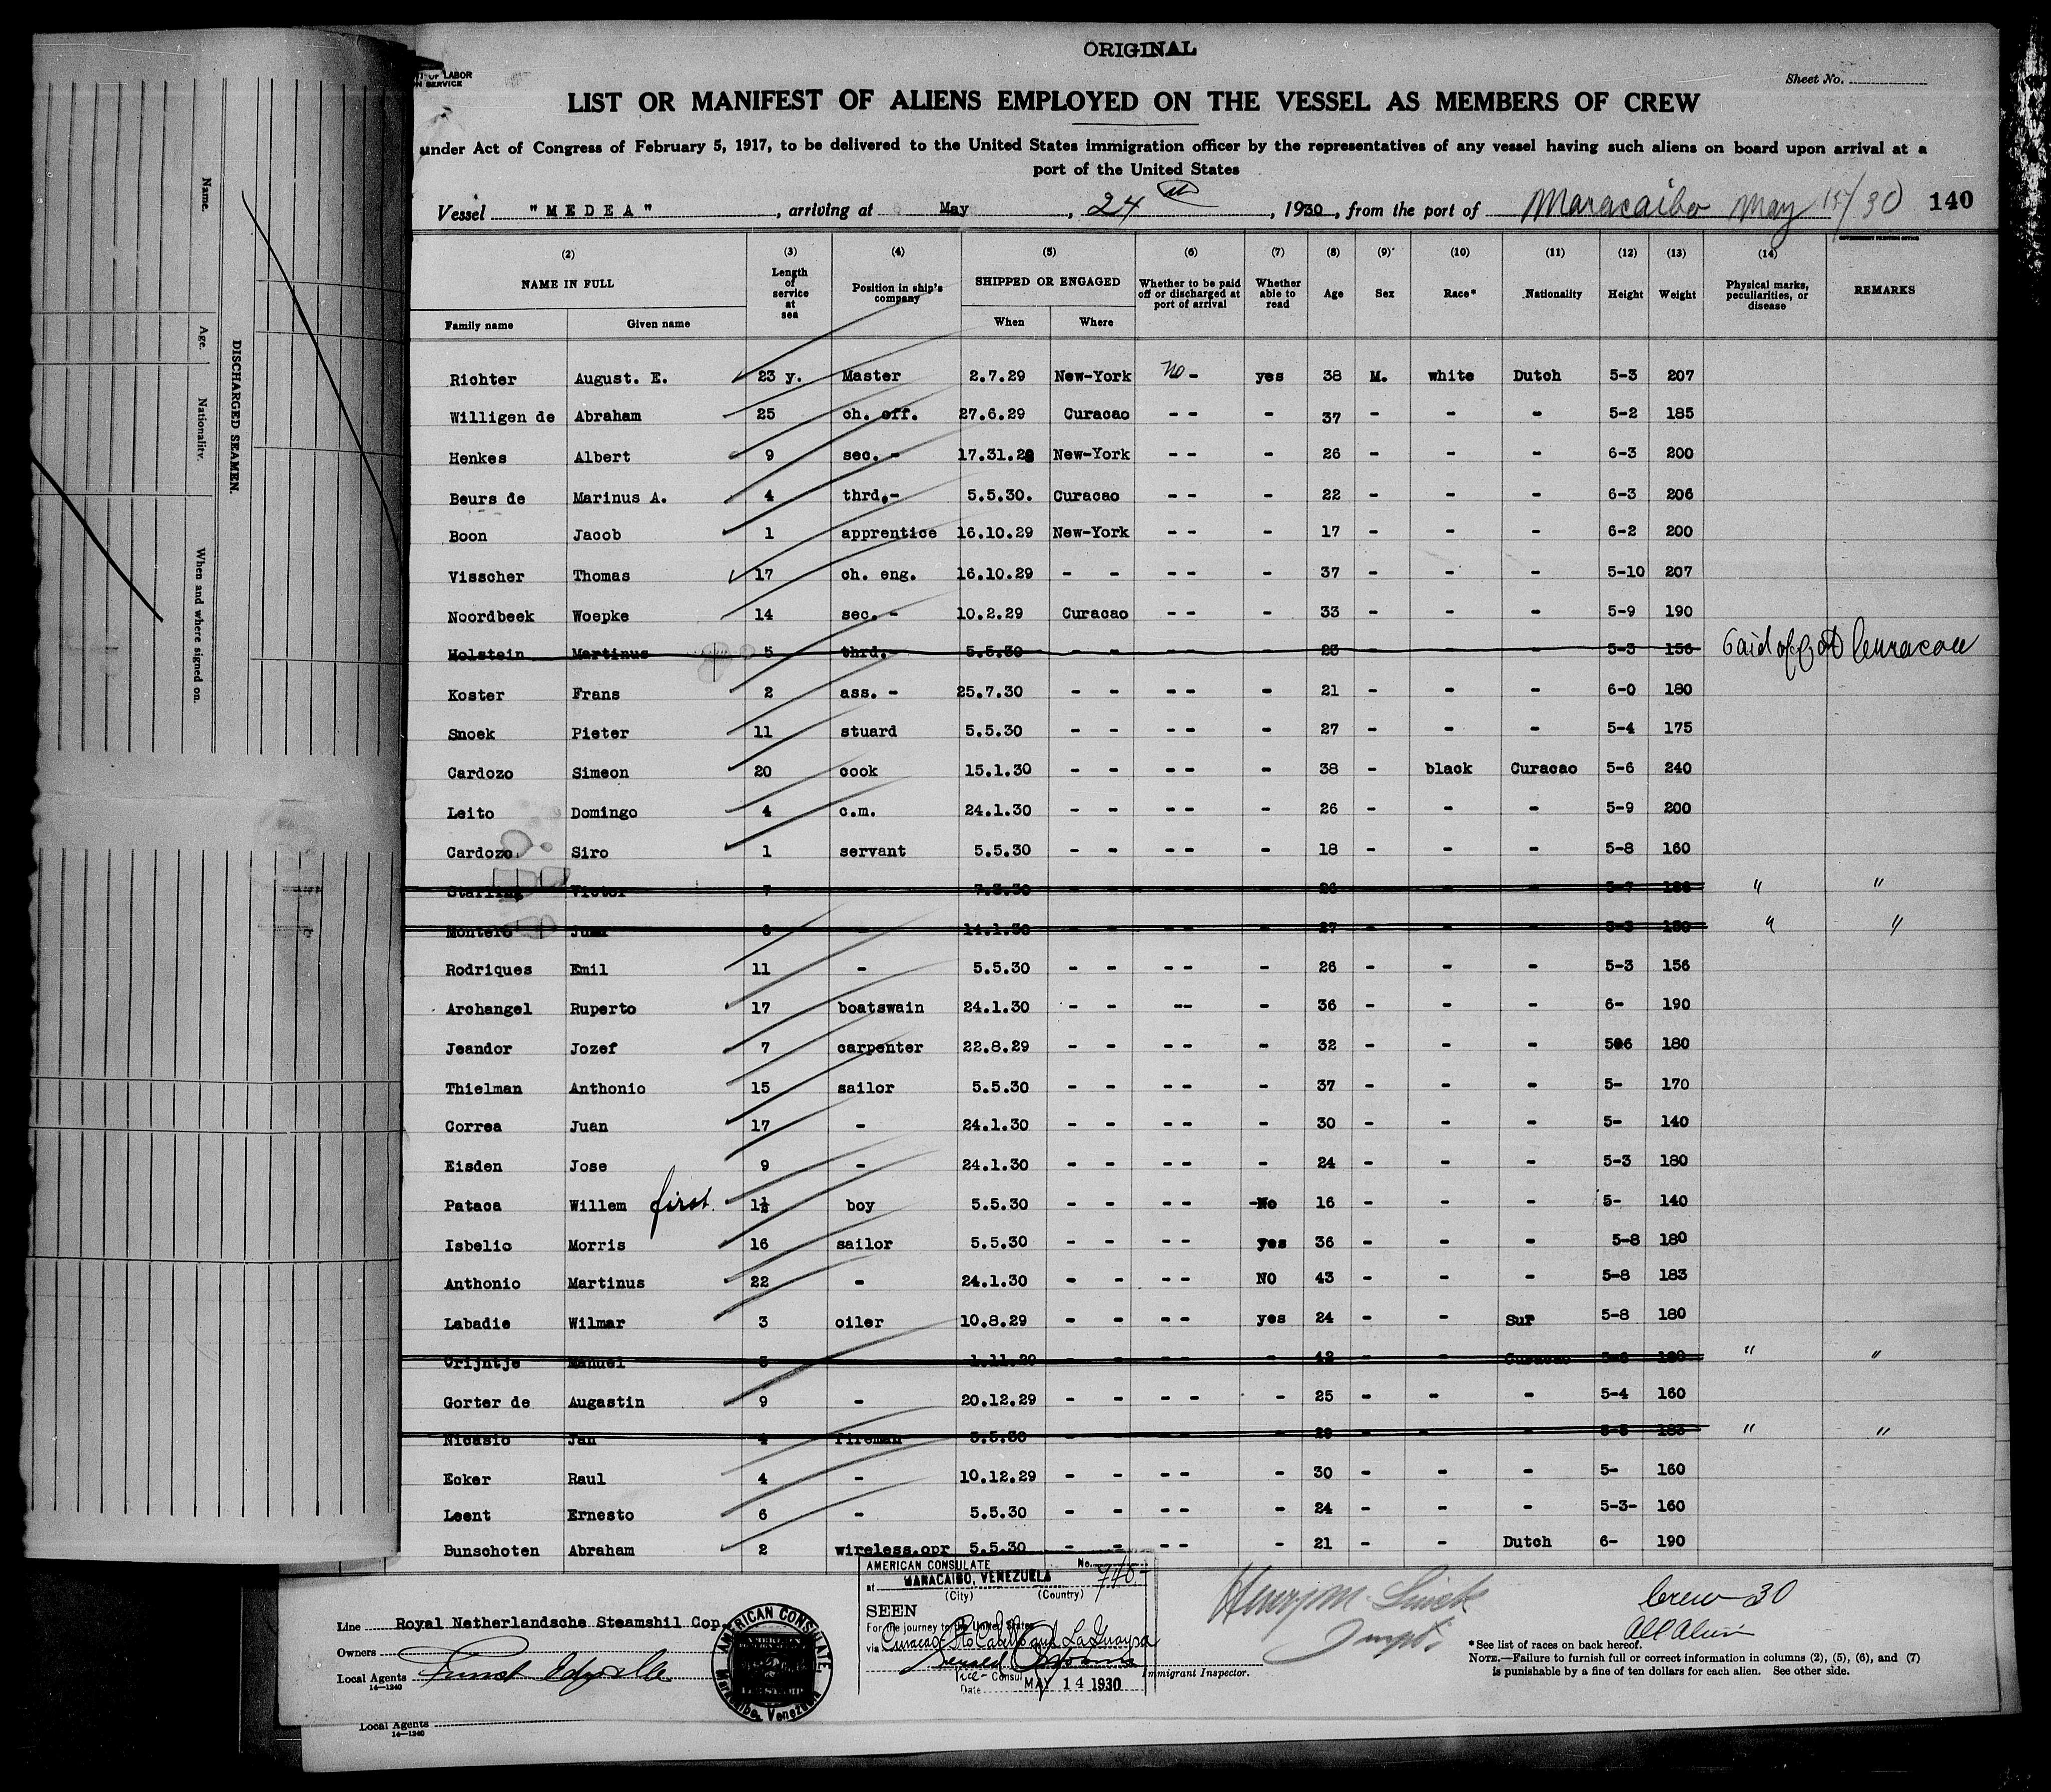 ORIGINAL
OF LABOR
SERVICE
Sheet No.
LIST OR MANIFEST OF ALIENS EMPLOYED ON THE VESSEL AS MEMBERS OF CREW
under Act of Congress of February 5, 1917, to be delivered to the United States immigration officer by the representatives of any vessel having such aliens on board upon arrival at a
port of the United States
Vessel "MEDEA", arriving at May, 24th, 1930, from the port of Maracaibo May 15/30 140
GOVERNMENT PRINTING OFFICE
(2) (3) (4) (5) (6) (7) (8) (9) (10) (11) (12) (13) (14)
NAME IN FULL Length of service at sea Position in ship's company SHIPPED OR ENGAGED Whether to be paid off or discharged at port of arrival Whether able to read Age Sex Race* Nationality Height Weight Physical marks, peculiarities, or disease REMARKS
Family name Given name When Where
Richter August. E. 23 y. Master 2.7.29 New-York No - yes 38 M. white Dutch 5-3 207
Willigen de Abraham 25 ch. off. 27.6.29 Curacao - - - 37 - - - 5-2 185
Henkes Albert 9 sec. - 17.31.28 New-York - - - 26 - - - 6-3 200
Beurs de Marinus A. 4 thrd.- 5.5.30. Curacao - - - 22 - - - 6-3 206
Boon Jacob 1 apprentice 16.10.29 New-York - - - 17 - - - 6-2 200
Visscher Thomas 17 ch. eng. 16.10.29 - - - - - 37 - - - 5-10 207
Noordbeek Woepke 14 sec. - 10.2.29 Curacao - - - 33 - - - 5-9 190
Holstein Martinus 5 thrd.- 5.5.30 - - - - - 23 - - - 5-3 156 off at Curacao
Koster Frans 2 ass. - 25.7.30 - - - - - 21 - - - 6-0 180
Snoek Pieter 11 stuard 5.5.30 - - - - - 27 - - - 5-4 175
Cardozo Simeon 20 cook 15.1.30 - - - - - 38 - black Curacao 5-6 240
Leito Domingo 4 c.m. 24.1.30 - - - - - 26 - - - 5-9 200
Cardozo Siro 1 servant 5.5.30 - - - - - 18 - - - 5-8 160
Victor 7 - 7.3.30 - - - - - 26 - - - 5-7 " "
Montero Juan 6 - 14.1.30 - - - - - 27 - - - 5-3 " "
Rodriques Emil 11 - 5.5.30 - - - - - 26 - - - 5-3 156
Archangel Ruperto 17 boatswain 24.1.30 - - -- - 36 - - - 6- 190
Jeandor Jozef 7 carpenter 22.8.29 - - - - - 32 - - - 506 180
Thielman Anthonio 15 sailor 5.5.30 - - - - - 37 - - - 5- 170
Correa Juan 17 - 24.1.30 - - - - - 30 - - - 5- 140
Eisden Jose 9 - 24.1.30 - - - - - 24 - - - 5-3 180
Pataca Willem first 1½ boy 5.5.30 - - - - No 16 - - - 5- 140
Isbelio Morris 16 sailor 5.5.30 - - - - yes 36 - - - 5-8 180
Anthonio Martinus 22 - 24.1.30 - - - - NO 43 - - - 5-8 183
Labadie Wilmar 3 oiler 10.8.29 - - - - yes 24 - - Sur 5-8 180
Crijntje Manuel 5 - 1.11.29 - - - - - 42 - - Curacao 5-6 180 " "
Gorter de Augastin 9 - 20.12.29 - - - - - 25 - - - 5-4 160
Nicasio Jan 4 fireman 5.5.30 - - - - - 29 - - - 183 " "
Ecker Raul 4 - 10.12.29 - - - - - 30 - - - 5- 160
Leent Ernesto 6 - 5.5.30 - - - - - 24 - - - 5-3- 160
Bunschoten Abraham 2 wireless.opr 5.5.30 - - - - - 21 - - Dutch 6- 190
Line Royal Netherlandsche Steamshil Cop
Owners
Local Agents
14—1240
Local Agents
14—1240
AMERICAN CONSULATE
Maracaibo, Venezuela
AMERICAN CONSULATE No. 748-
at MARACAIBO, VENEZUELA
(City) (Country)
SEEN
For the journey to the United States
via Curacao, Pto Cabello and La Guayra
Vice - Consul
Date MAY 14 1930
Immigrant Inspector.
Crew 30
All Alien
*See list of races on back hereof.
NOTE.—Failure to furnish full or correct information in columns (2), (5), (6), and (7)
is punishable by a fine of ten dollars for each alien. See other side.
DISCHARGED SEAMEN.
Name.
Age.
Nationality.
When and where signed on.